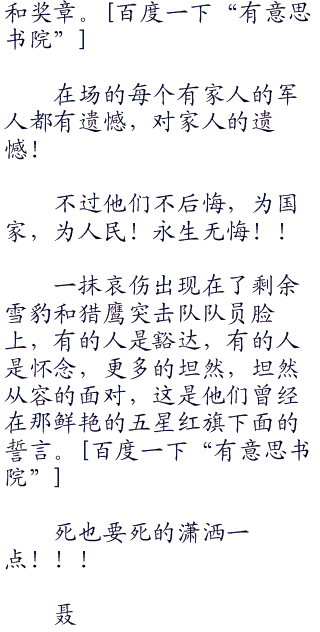 和奖章。[百度一下“有意思
书院”]
在场的每个有家人的军
人都有遗憾，对家人的遗
憾！
不过他们不后悔，为国
家，为人民！永生无悔！！
一抹哀伤出现在了剩余
雪豹和猎鹰突击队队员脸
上，有的人是豁达，有的人
是怀念，更多的坦然，坦然
从容的面对，这是他们曾经
在那鲜艳的五星红旗下面的
誓言。[百度一下“有意思书
院”]
死也要死的潇洒一
点！！！
聂